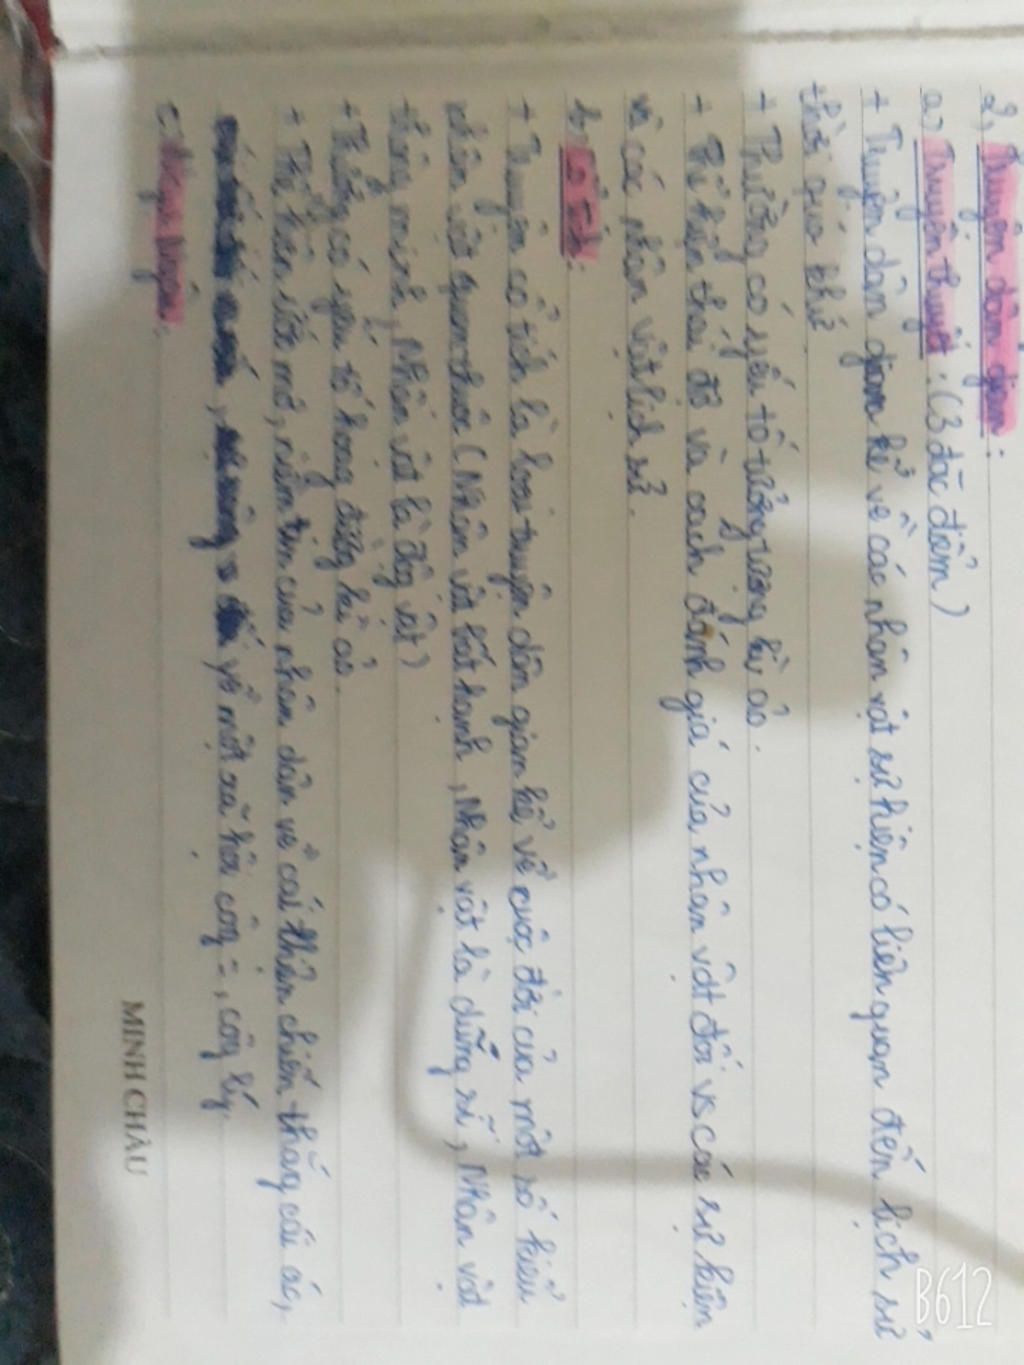 2, Truyện dân gian:
a, Truyền thuyết: (3 đặc điểm)
+ Truyện dân gian kể về các nhân vật sự kiện có liên quan đến lịch sử,
thời quá khứ.
+ Thường có yếu tố tưởng tượng kì ảo.
+ Thể hiện thái độ và cách đánh giá của nhân vật đối vs các sự kiện
và các nhân vật lịch sử.
b, Cổ tích:
+ Truyện cổ tích là loại truyện dân gian kể về cuộc đời của một số kiểu
nhân vật quen thuộc (Nhân vật bất hạnh, Nhân vật là dũng sĩ, Nhân vật
thông minh, Nhân vật là động vật)
+ Thường có yếu tố hoang đường kì ảo.
+ Thể hiện ước mơ, niềm tin của nhân dân về cái thiện chiến thắng cái ác,
về một xã hội công =, công lý.
c, Ngụ Ngôn:
MINH CHÂU
B612